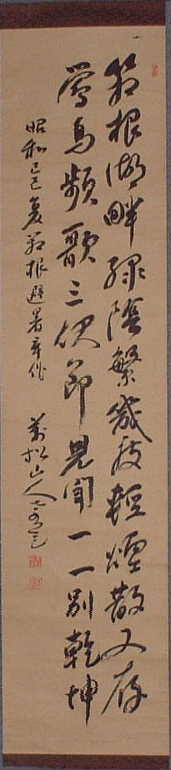 箱根湖畔緑陰繁幾度輕煙散又存
鶯鳥頻歌三伏節見聞一一別乾坤
昭和己巳夏箱根避暑作
萬松山人